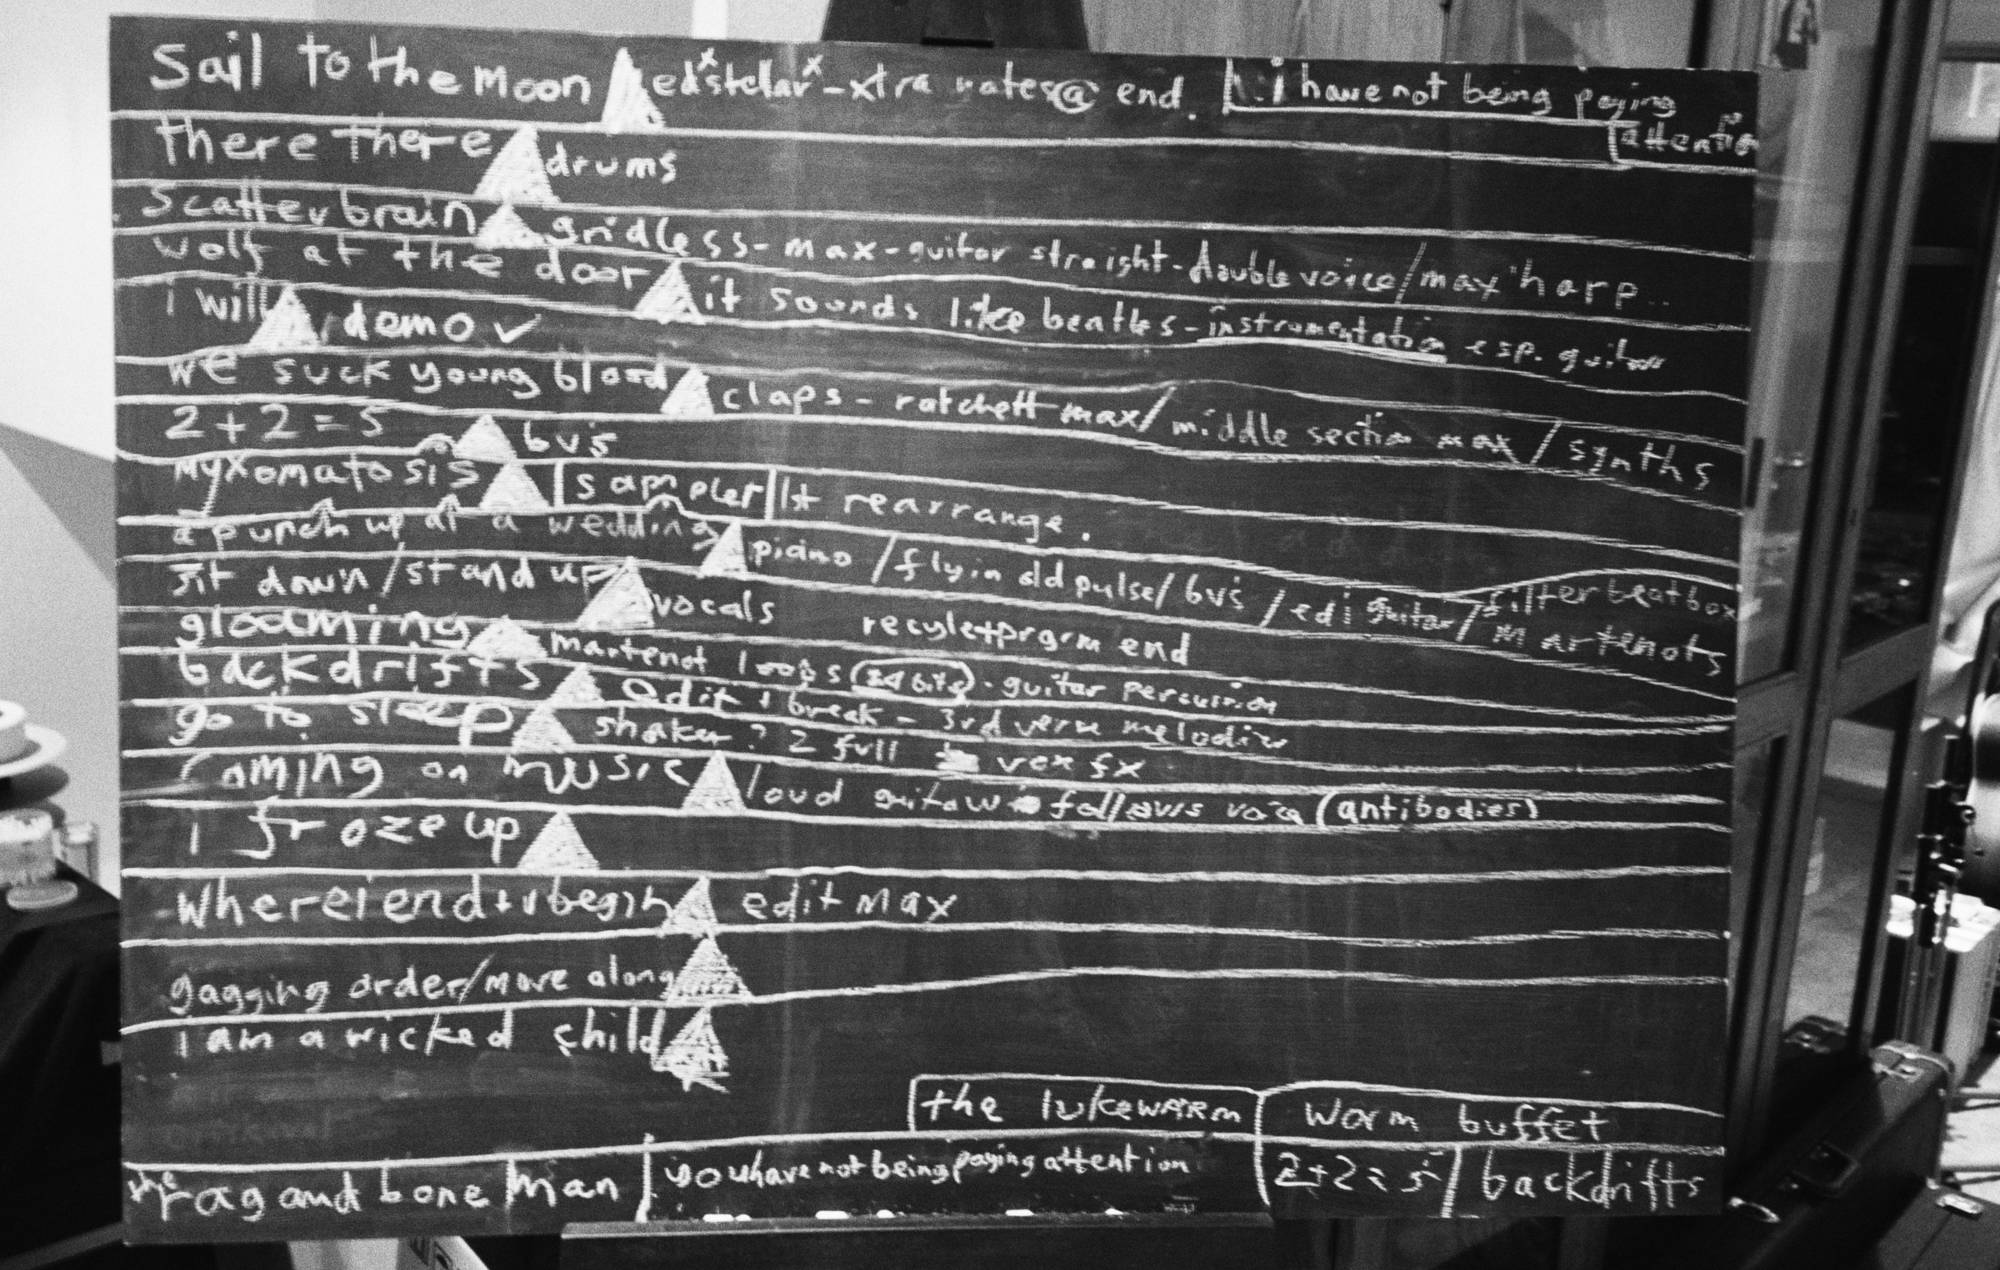 Sail to the moon ed'stelar - xtra notes @ end. i have not being paying
attention
there there drums
Scatterbrain gridless - max - guitar straight - double voice / max 'harp..
wolf at the door it sounds like beatles - instrumentation esp. guitar
i will demo ✓
we suck young blood claps - ratchett max / middle section max / synths
2+2=5 bvs
myxomatosis sampler 1st rearrange.
a punch up at a wedding piano / fly in old pulse / bvs / ed guitar / filter beatbox
martenots
sit down / stand up vocals recyle + prgrm end
gloaming martenot loops - guitar percussion
backdrifts edit + break - 3rd verse melodies
go to sleep shaker? 2 full vox fx
coming on music loud guitar follows voice (antibodies)
i froze up
where i end + u begin edit max
gagging order / move along
i am a wicked child
the lukewarm worm buffet
the rag and bone man you have not being paying attention 2+2=5 backdrifts